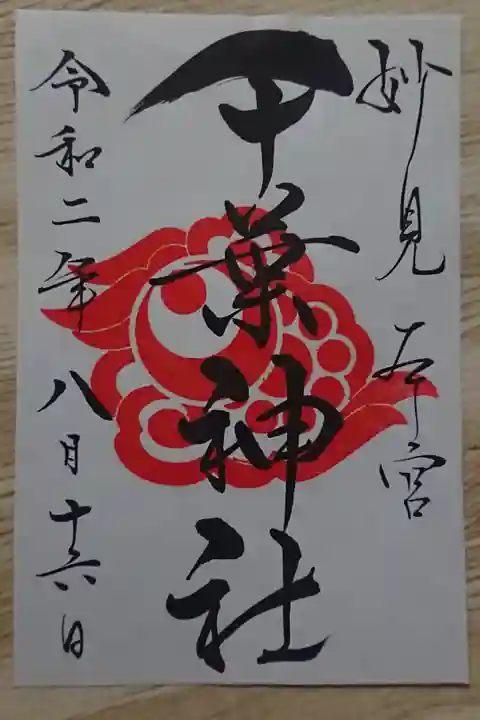 妙見本宮
千葉神社
令和二年八月十六日